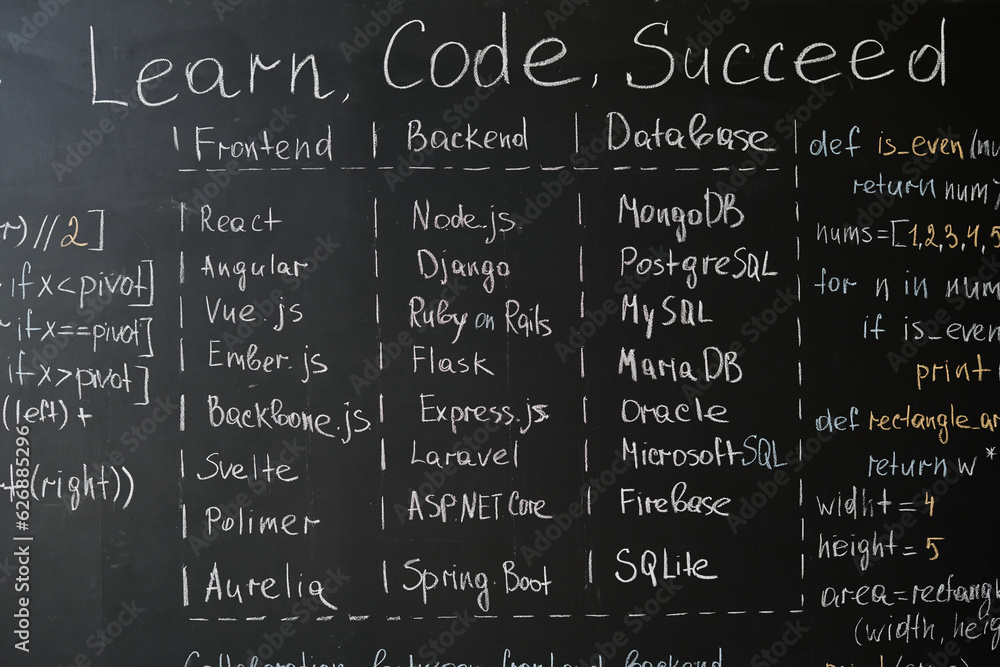 Learn, Code, Succeed
Frontend Backend Database
React Node.js MongoDB
Angular Django PostgreSQL
Vue.js Ruby on Rails MySQL
Ember.js Flask MariaDB
Backbone.js Express.js Oracle
Svelte Laravel Microsoft SQL
Polimer ASP.NET Core Firebase
Aurelia Spring Boot SQLite
Collaboration between frontend backend
r)//2]
if x<pivot]
if x==pivot]
if x>pivot]
(left) +
(right))
def is_even(nu
return num
nums=[1,2,3,4,5
for n in num
if is_even
print
def rectangle_ar
return w *
widht = 4
height = 5
area=rectangl
(width, heig
Adobe Stock | #626885296